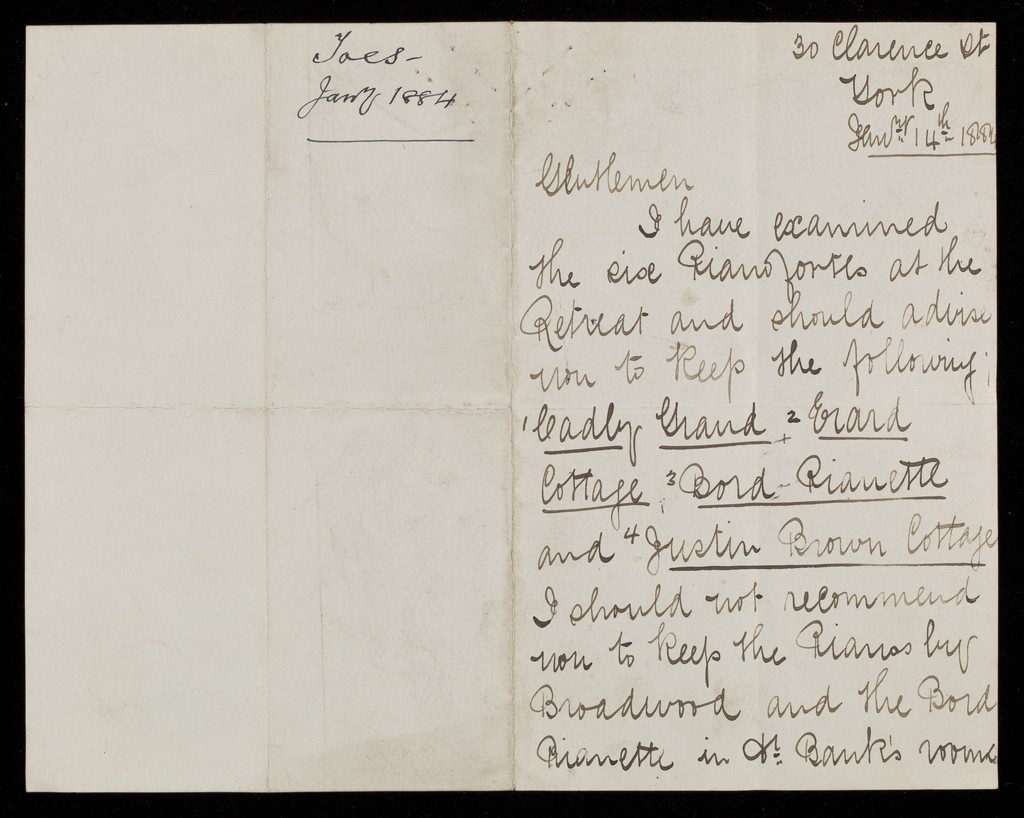 Toes -
Jany 1884
30 Clarence St
York
Jany 14th 1884
Gentlemen
I have examined
the six Pianofortes at the
Retreat and should advise
you to keep the following;
1 Cadby Grand, 2 Erard
Cottage, 3 Bord-Pianette
and 4 Justin Brown Cottage
I should not recommend
you to keep the Pianos by
Broadwood and the Bord
Pianette in Dr. Bank's rooms